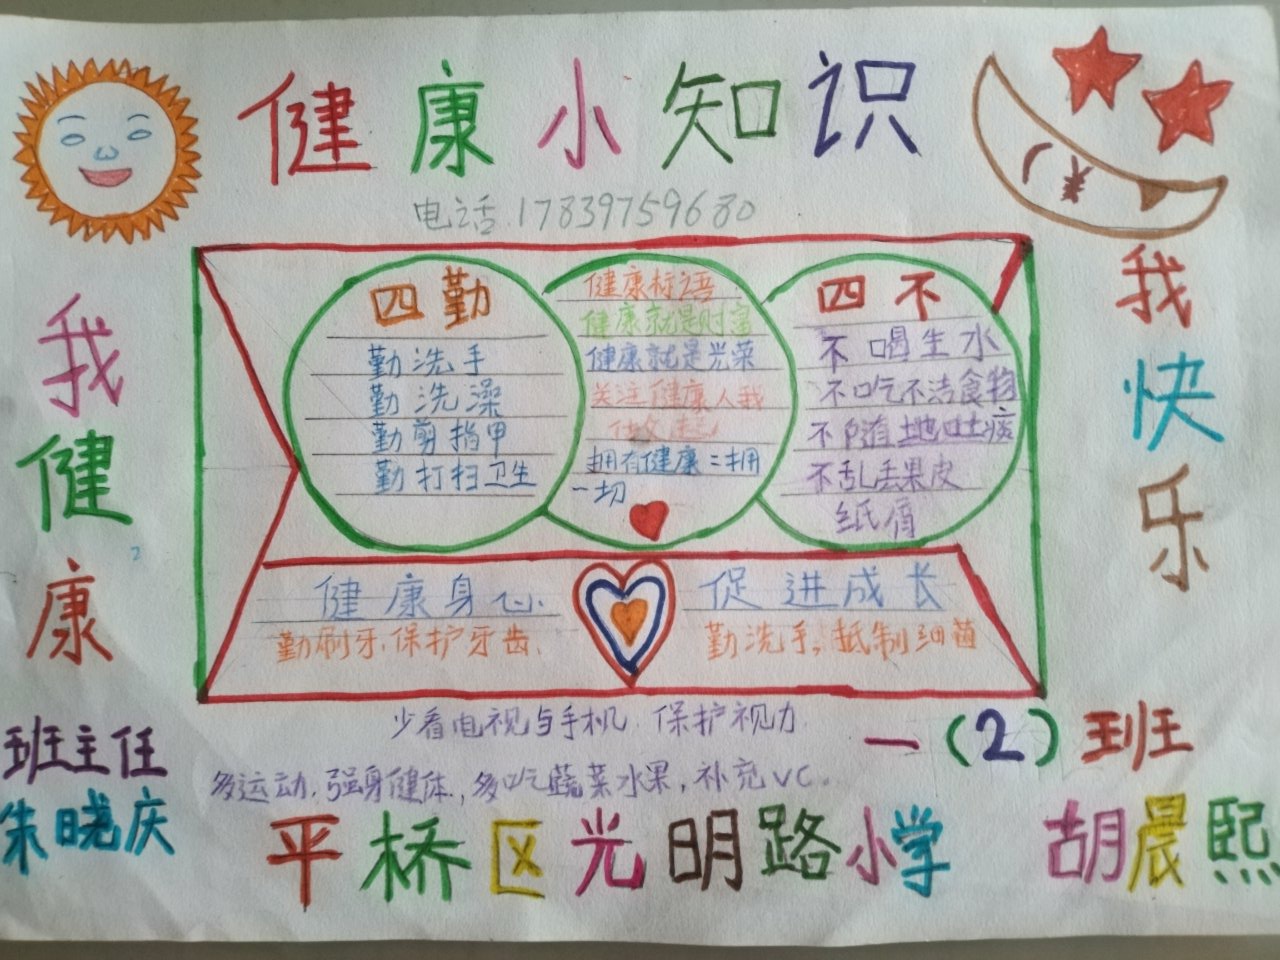 健康小知识
电话17839759680
我健康
四勤
勤洗手
勤洗澡
勤剪指甲
勤打扫卫生
健康标语
健康就是财富
健康就是光荣
关注健康人我
拥有健康=拥
一切
四不
不喝生水
不吃不洁食物
不随地吐痰
不乱丢果皮
纸屑
我快乐
健康身心.
勤刷牙.保护牙齿.
促进成长
勤洗手,抵制细菌
少看电视与手机.保护视力.
多运动.强身健体,多吃蔬菜水果,补充VC.
一(2)班
班主任
朱晓庆
平桥区光明路小学
胡晨熙